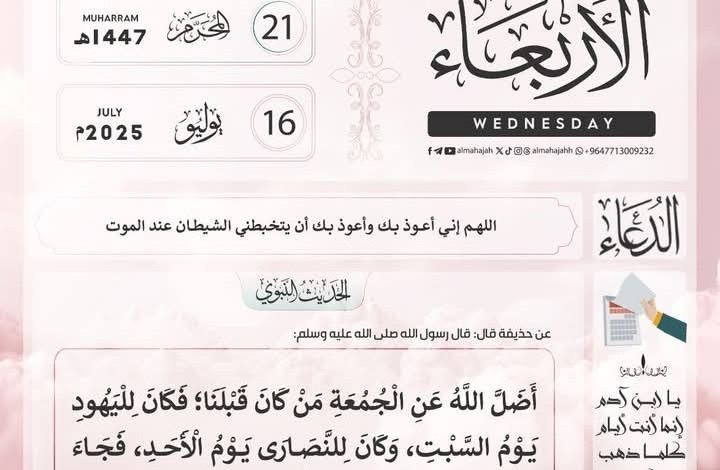 الأربعاء
WEDNESDAY
almahajah almahajahh +9647713009232
21
المحرّم
MUHARRAM
1447هـ
16
يوليو
JULY
2025م
الدعاء
اللهم إني أعوذ بك وأعوذ بك أن يتخبطني الشيطان عند الموت
الحديث النبوي
عن حذيفة قال: قال رسول الله صلى الله عليه وسلم:
أَضَلَّ اللَّهُ عَنِ الْجُمُعَةِ مَنْ كَانَ قَبْلَنَا؛ فَكَانَ لِلْيَهُودِ
يَوْمُ السَّبْتِ، وَكَانَ لِلنَّصَارَى يَوْمُ الْأَحَدِ، فَجَاءَ
يا ابن آدم
إنما أنت أيام
كلما ذهب